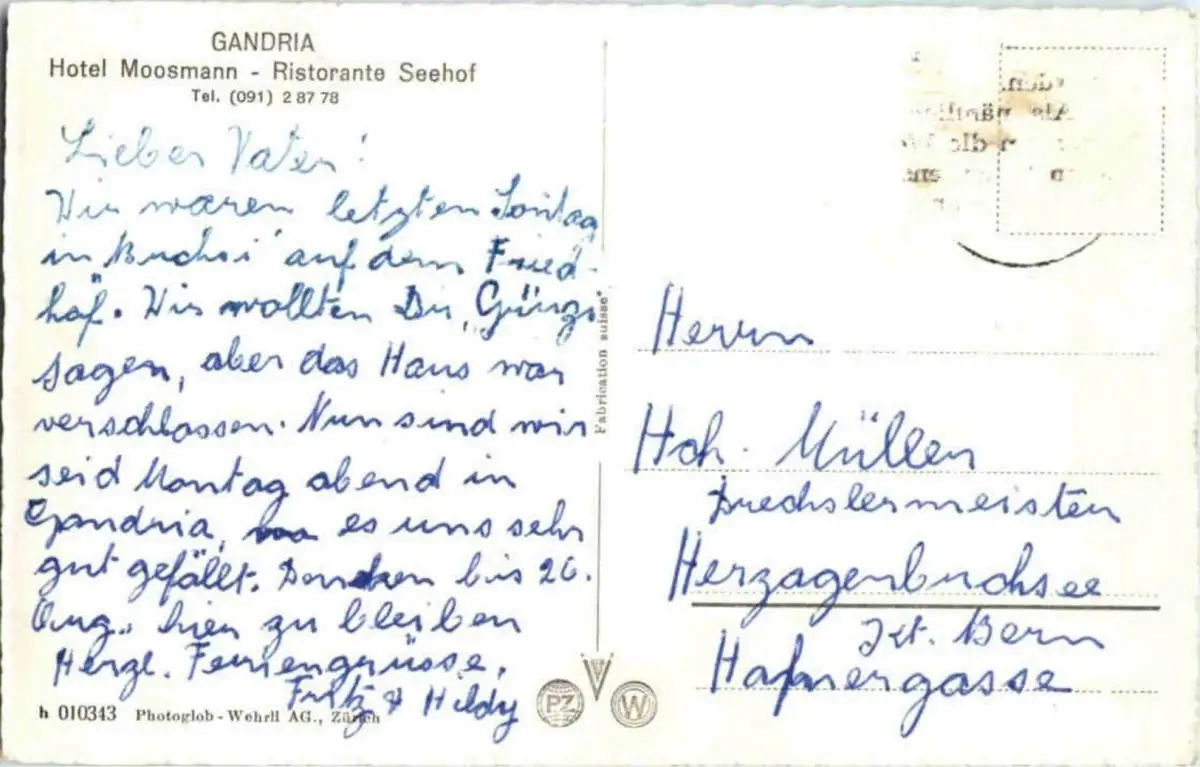 GANDRIA
Hotel Moosmann - Ristorante Seehof
Tel. (091) 2 87 78
Lieber Vater!
Wir waren letzten Sontag
in Buchsi auf dem Fried-
hof. Wir wollten Dir
sagen, aber das Haus war
verschlossen. Nun sind wir
seid Montag abend in
Gandria, wo es uns sehr
gut gefällt. Denken bis 26.
Aug. hier zu bleiben
Herzl. Feriengrüsse,
Fritz & Hildy
h 010343 Photoglob-Wehrli AG., Zürich
"Fabrication suisse"
PZ
W
Herrn
Hch. Müller
Drechslermeister
Herzagenbuchsee
Kt. Bern
Hafnergasse